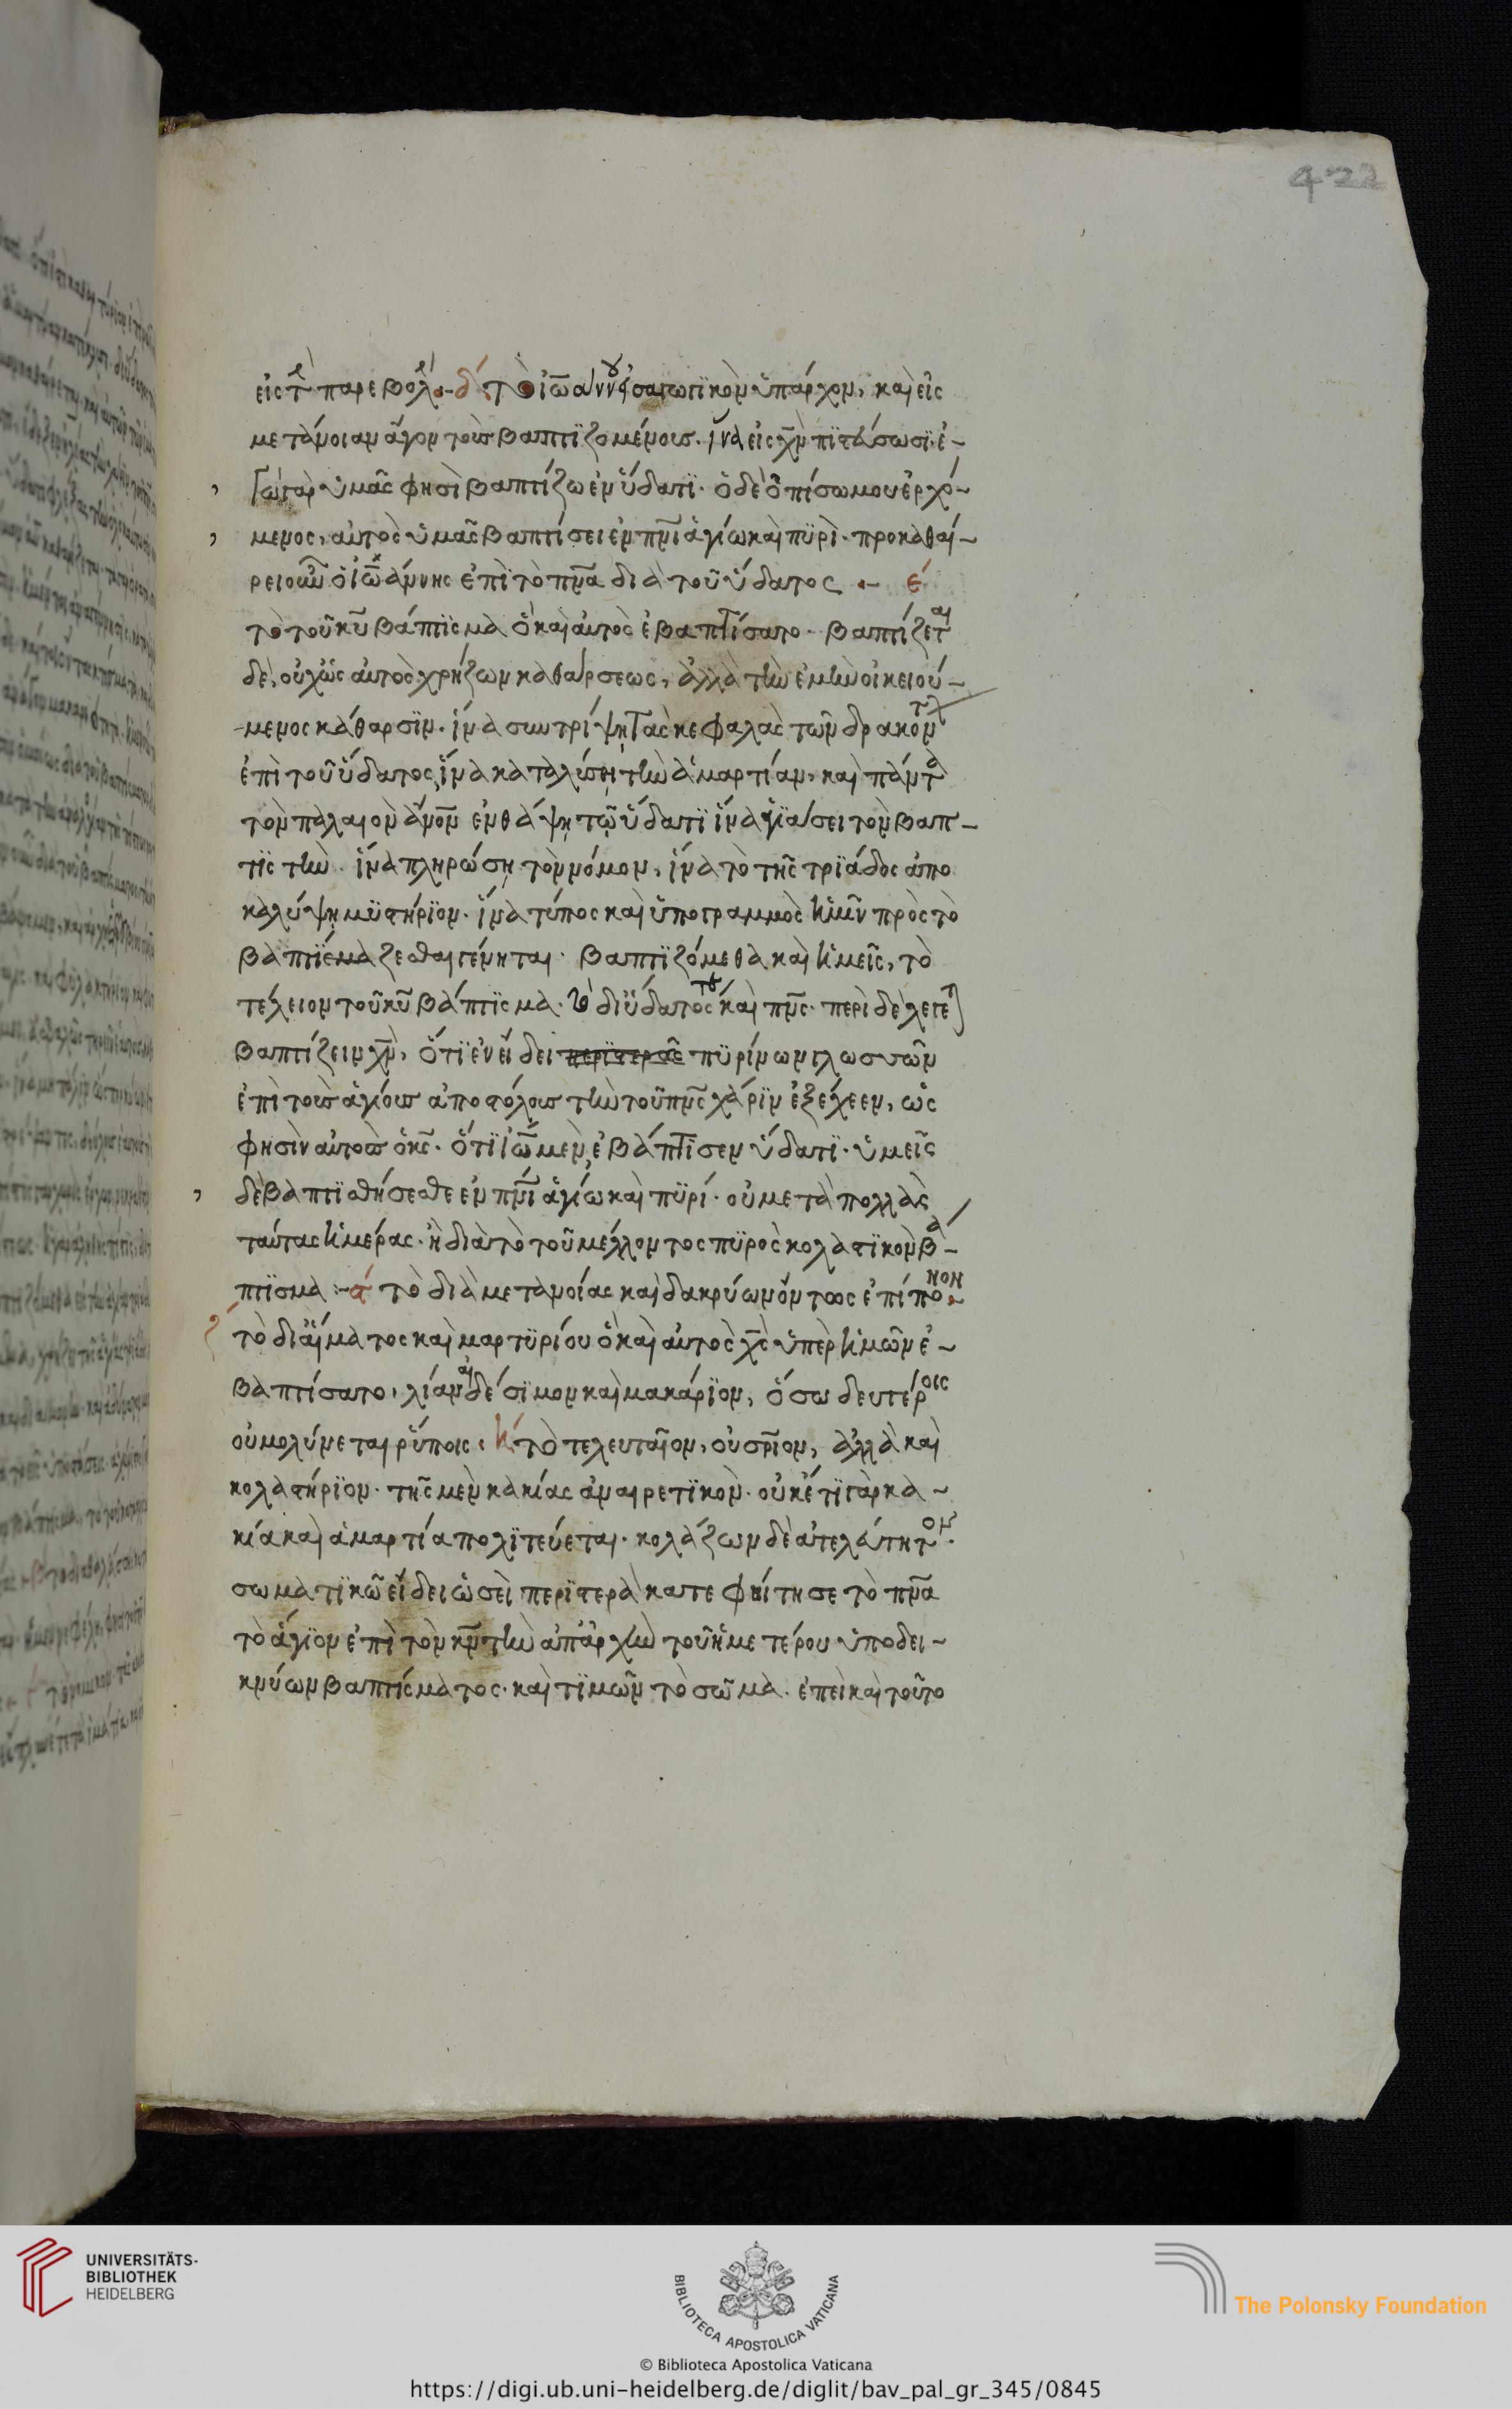 422
εἰς τ παρεβολ · δ τὸ ἰωάννου εἰσαγωγικὸν ὑπάρχον, καὶ εἰς
μετάνοιαν ἄγον τοὺς βαπτιζομένους. ἵνα εἰς χν πιστεύσωσι. ἐ-
γὼ γὰρ ὑμᾶς φησὶ βαπτίζω ἐν ὕδατι. ὁ δὲ ὀπίσω μου ἐρχό-
μενος, αὐτὸς ὑμᾶς βαπτίσει ἐν πνι ἁγίω καὶ πυρί. προκαθαί-
ρει οὖν ὁ ἰωάννης ἐπὶ τὸ πνα διὰ τοῦ ὕδατος ·– ε
τὸ τοῦ κυ βάπτισμα ὃ καὶ αὐτὸς ἐβαπτίσατο. βαπτίζεται
δὲ, οὐχ ὡς αὐτὸς χρήζων καθάρσεως, ἀλλὰ τὴν ἐμὴν οἰκειού-
μενος κάθαρσιν. ἵνα συντρίψη τὰς κεφαλὰς τῶν δρακόντων
ἐπὶ τοῦ ὕδατος, ἵνα καταλύση τὴν ἁμαρτίαν, καὶ πάντα
τὸν παλαιὸν ἄνον ἐνθάψη τῷ ὕδατι ἵνα ἁγιάσει τὸν βαπ-
τιστὴν. ἵνα πληρώση τὸν νόμον, ἵνα τὸ τῆς τριάδος ἀπο
καλύψη μυστήριον. ἵνα τύπος καὶ ὑπογραμμὸς ἡμῖν πρὸς τὸ
βαπτίζεσθαι γένηται. βαπτιζόμεθα καὶ ἡμεῖς, τὸ
τέλειον τοῦ κυ βάπτισμα. τὸ δι ὕδατος καὶ πνς. περὶ δὲ λέγεται
βαπτίζειν χν, ὅτι ἐν εἴδει περιστερᾶς πυρίνων γλωσσῶν
ἐπὶ τοὺς ἁγίους ἀποστόλους τὴν τοῦ πνς χάριν ἐξέχεεν, ὡς
φησὶν αὐτοῖς ὁ κς. ὅτι ἰω μὲν, ἐβάπτισεν ὕδατι. ὑμεῖς
δὲ βαπτισθήσεσθε ἐν πνι ἁγίω καὶ πυρί. οὐ μετὰ πολλὰς
ταύτας ἡμέρας. ἢ διὰ τὸ τοῦ μέλλοντος πυρὸς κολαστικὸν βά-
πτισμα :– ϛ τὸ διὰ μετανοίας καὶ δακρύων ὄντως ἐπίπονον
ζ τὸ δι αἵματος καὶ μαρτυρίου ὃ καὶ αὐτὸς χς ὑπὲρ ἡμῶν ἐ-
βαπτίσατο, λίαν αἰδέσιμον καὶ μακάριον, ὅσω δευτέροις
οὐ μολύνεται ῥύποις. η τὸ τελευταῖον, οὐ σριον, ἀλλὰ καὶ
κολαστήριον. τῆς μὲν κακίας ἀναιρετικὸν. οὐκέτι γὰρ κα-
κία καὶ ἁμαρτία πολιτεύεται. κολάζων δὲ ἀτελεύτητον.
σωματικῶ εἴδει ὡσεὶ περιστερὰ κατεφοίτησε τὸ πνα
τὸ ἅγιον ἐπὶ τὸν κν τὴν ἀπαρχὴν τοῦ ἡμετέρου ὑποδει-
κνύων βαπτίσματος. καὶ τιμῶν τὸ σῶμα. ἐπεὶ καὶ τοῦτο
UNIVERSITÄTS-
BIBLIOTHEK
HEIDELBERG
BIBLIOTECA APOSTOLICA VATICANA
The Polonsky Foundation
© Biblioteca Apostolica Vaticana
https://digi.ub.uni-heidelberg.de/diglit/bav_pal_gr_345/0845